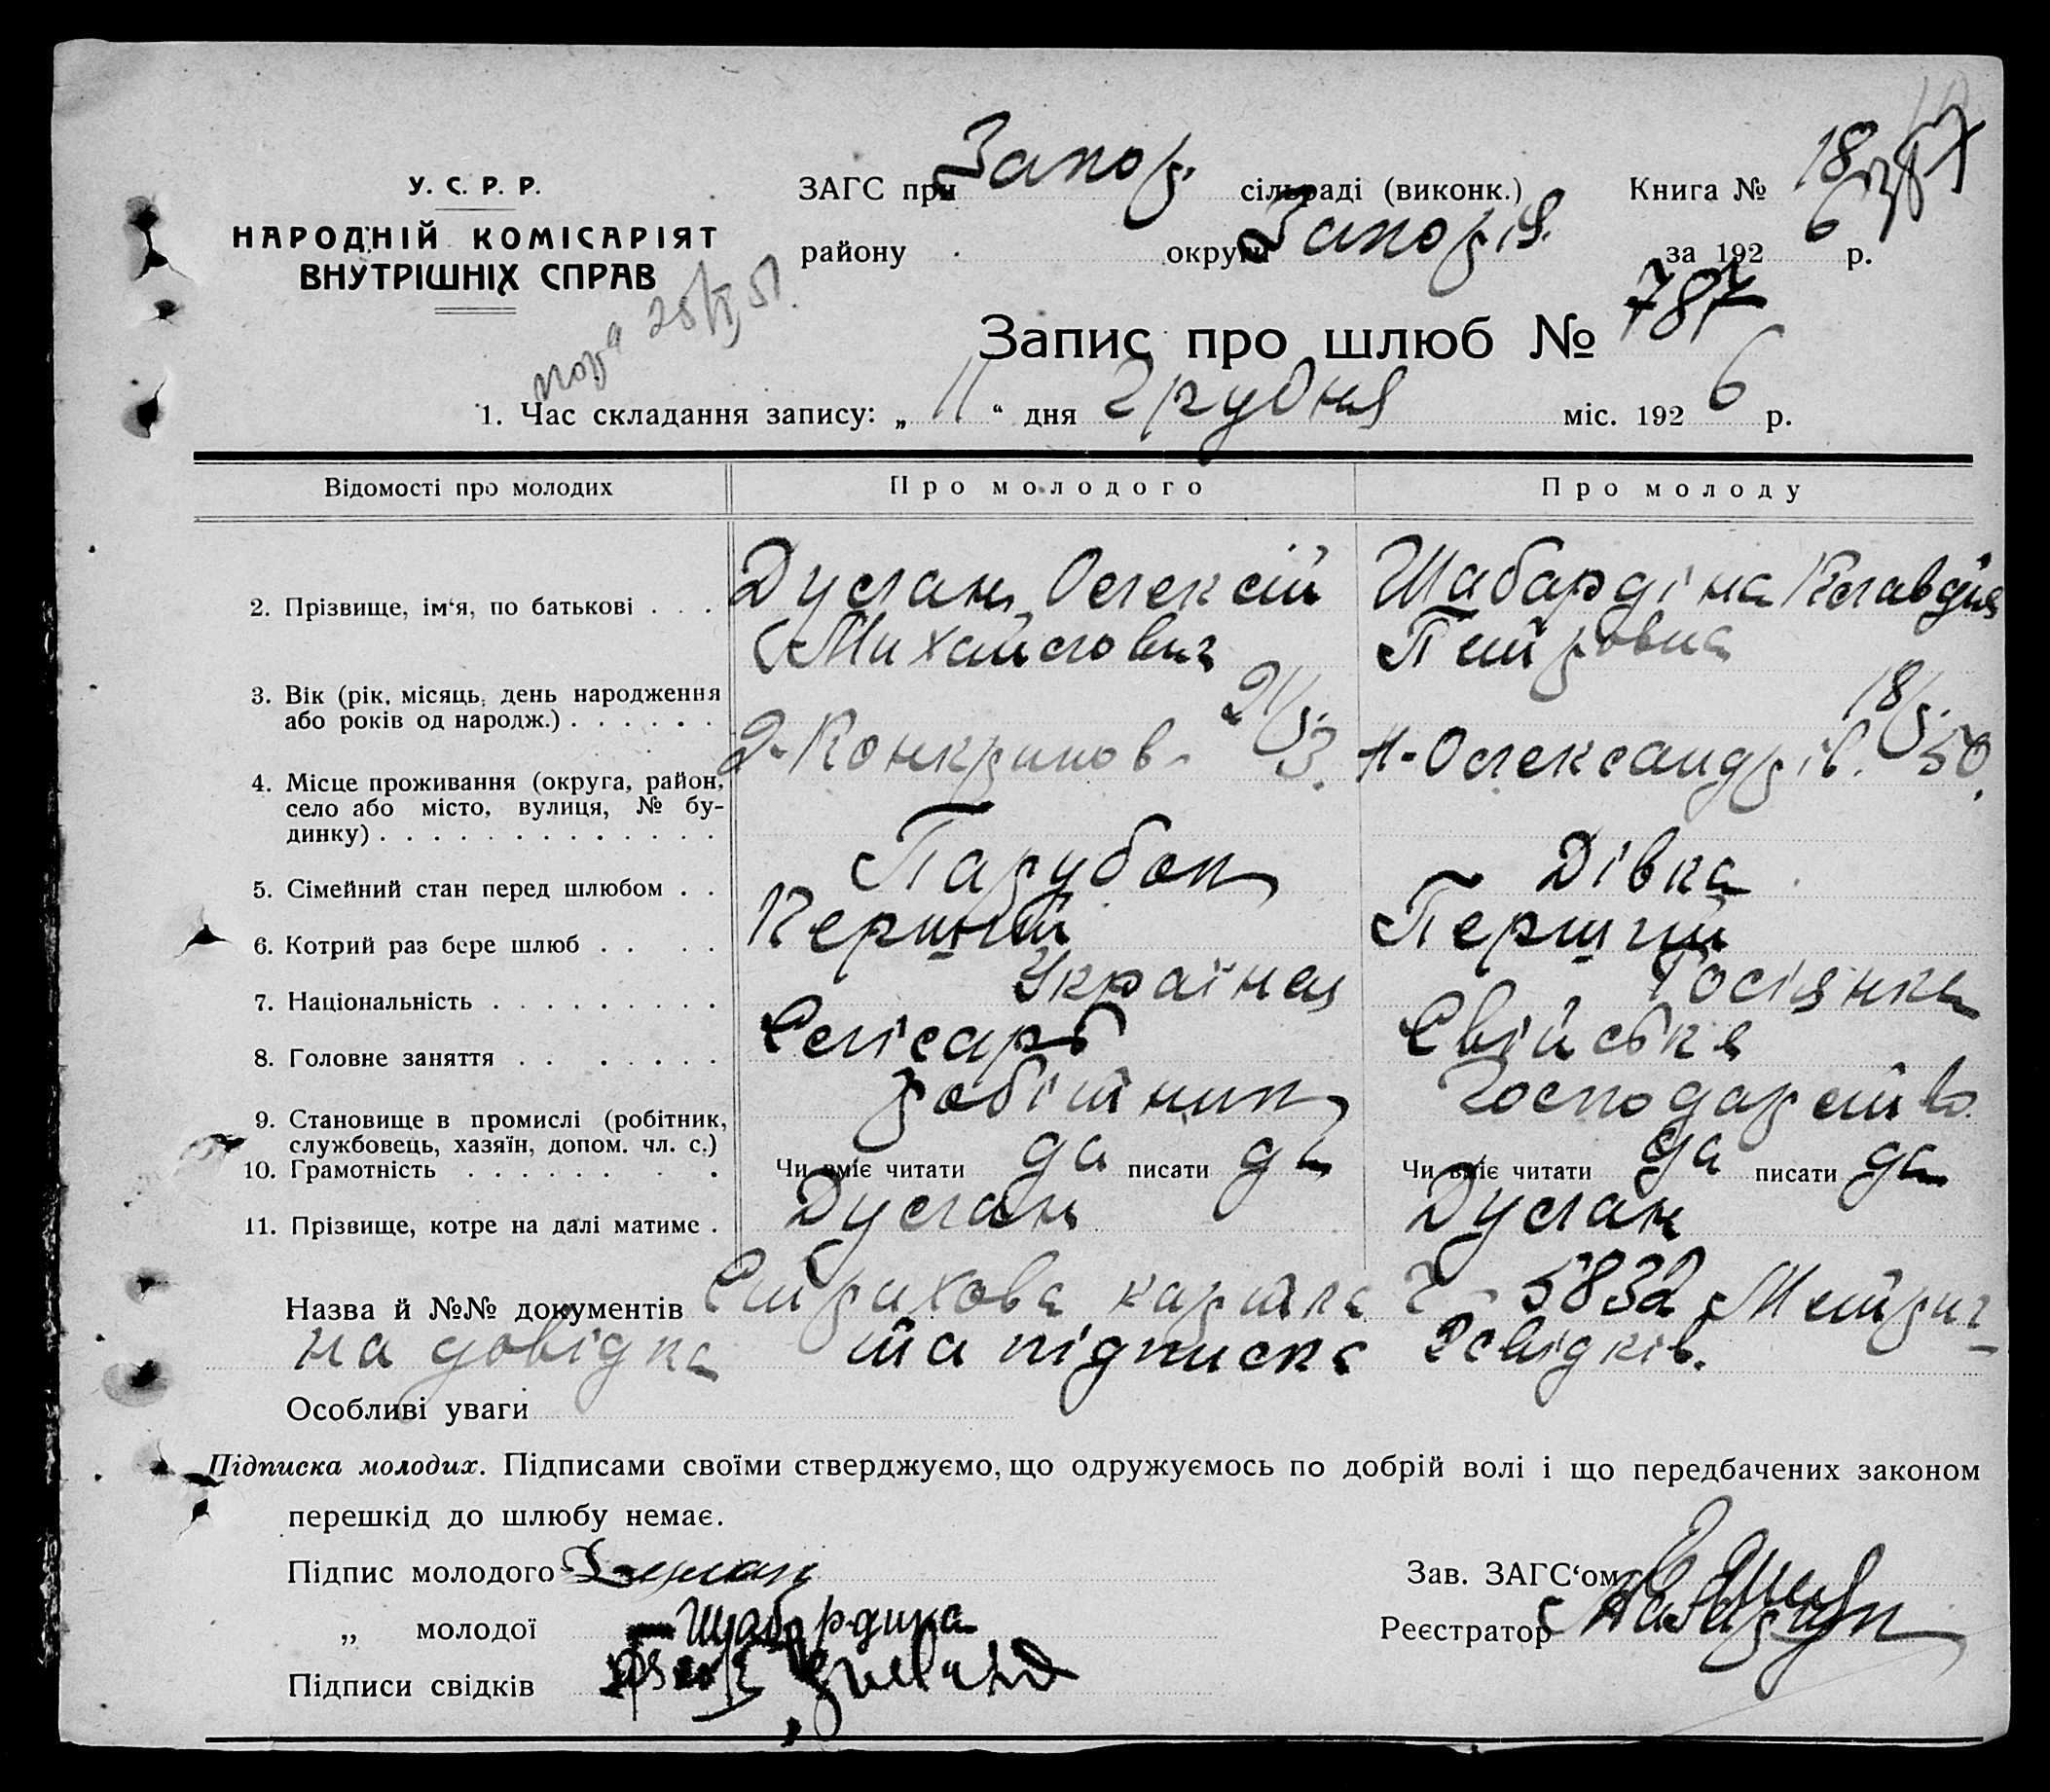 У. С. Р. Р.
НАРОДНІЙ КОМІСАРІЯТ
ВНУТРІШНІХ СПРАВ
ЗАГС при Запор. сільраді (виконк.) Книга № 18
району округи Запоріз. за 1926 р.
Запис про шлюб № 787
1. Час складання запису: „ 11 “ дня Грудня міс. 1926 р.
Відомості про молодих Про молодого Про молоду
2. Прізвище, ім‘я, по батькові . . . Дуслан Олексій Михайлович Шабардіна Клавдія Петровна
3. Вік (рік, місяць, день народження або років од народж.) . . . . . . 21 р. 18 р.
4. Місце проживання (округа, район, село або місто, вулиця, № будинку) . . . . . . . . . . . . . Олександрів. 50
5. Сімейний стан перед шлюбом . . Парубок Дівка
6. Котрий раз бере шлюб . . . . Перший Перший
7. Національність . . . . . . . . . Українец Росіянка
8. Головне заняття . . . . . . . Слісарь Свійське
9. Становище в промислі (робітник, службовець, хазяїн, допом. чл. с.) робітник Господарство
10. Грамотність . . . . . . . . Чи вміє читати да писати да Чи вміє читати да писати да
11. Прізвище, котре на далі матиме . Дуслан Дуслан
Назва й №№ документів Страхова картка 5832, Метрич-
на довідка та підписка 2 свідків.
Особливі уваги
Підписка молодих. Підписами своїми стверджуємо, що одружуємось по добрій волі і що передбачених законом
перешкід до шлюбу немає.
Підпис молодого Зав. ЗАГС‘ом
„ молодої Шабардина Реєстратор
Підписи свідків